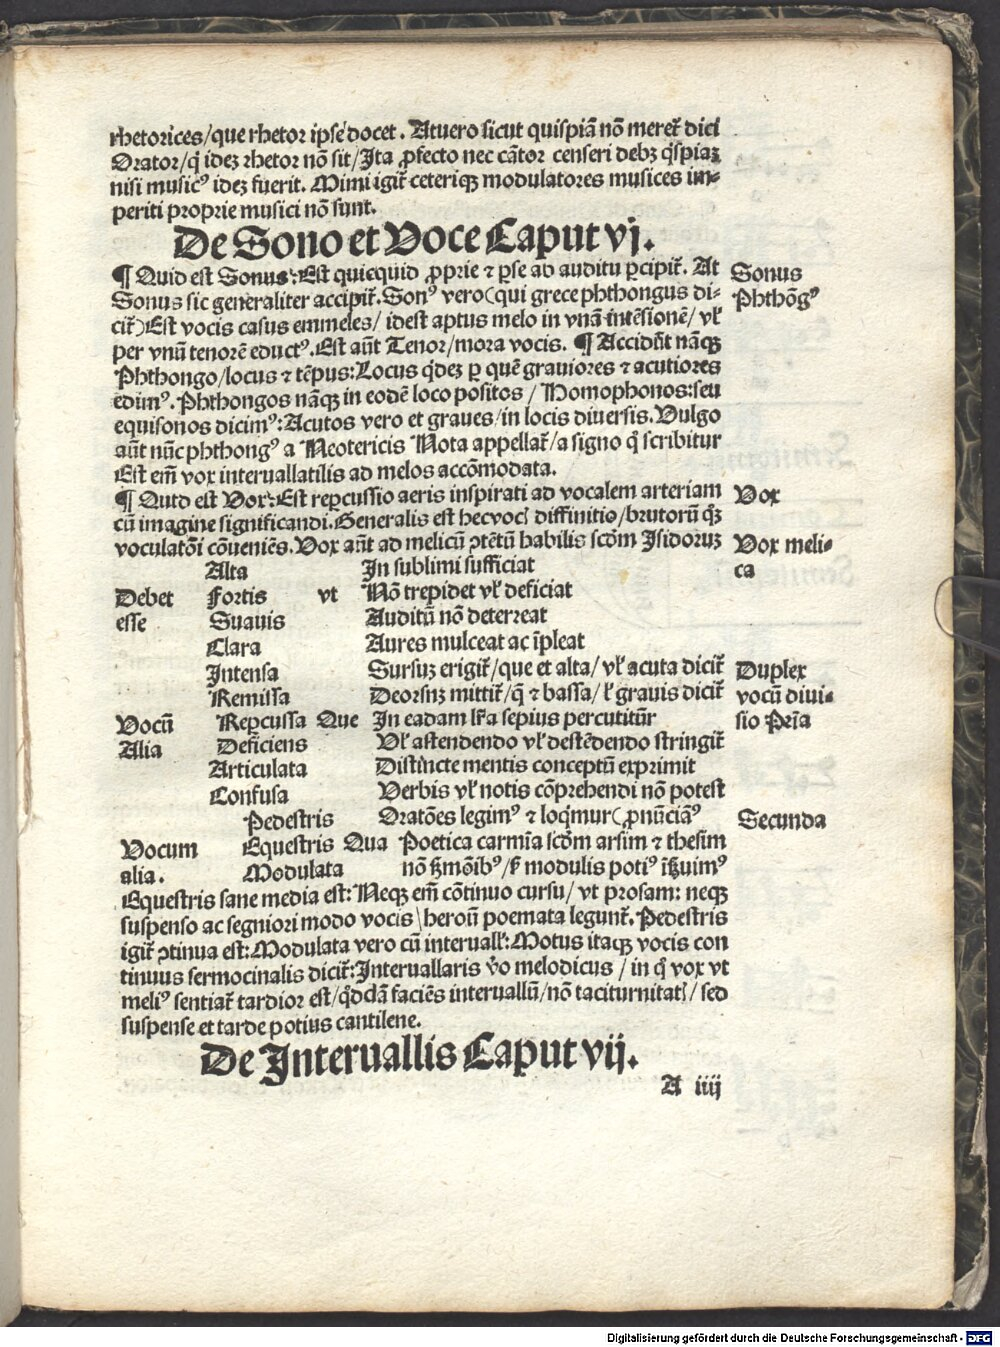 rhetorices/que rhetor ipse docet. Atuero sicut quispiã nõ meret̃ dici
Orator/q̃ ideȝ rhetor nõ sit/Ita ꝓfecto nec cãtor censeri debȝ q̃spiaȝ
nisi musicꝰ ideȝ fuerit. Mimi igit̃ ceteriqȝ modulatores musices im⸗
periti proprie musici nõ sunt.
De Sono et Voce Caput vj.
¶ Quid est Sonus: Est quicquid ꝓprie ⁊ ꝑse ab auditu ꝑcipit̃. At
Sonus
Sonus sic generaliter accipit̃. Sonꝰ vero (qui grece phthongus di⸗
Phthõgꝰ
cit̃) Est vocis casus emmeles/ idest aptus melo in vnã intẽsionẽ/ vł
per vnũ tenorẽ eductꝰ. Est aũt Tenor/mora vocis. ¶ Accidũt nãqȝ
Phthongo/locus ⁊ tẽpus: Locus q̃deȝ ꝑ quẽ grauiores ⁊ acutiores
ẽdimꝰ. Phthongos nãqȝ in eodẽ loco positos / Homophonos: seu
equisonos dicimꝰ: Acutos vero et graues/ in locis diuersis. Vulgo
aũt nũc phthongꝰ a Neotericis Nota appellat̃/a signo q̃ scribitur
Est em̃ vox interuallatilis ad melos accõmodata.
¶ Quid est Vox: Est reꝑcussio aeris inspirati ad vocalem arteriam
Vox
cũ imagine significandi. Generalis est hec vocꝭ diffinitio/brutorũ q̃ȝ
voculatõi cõueniẽs. Vox aũt ad melicũ ꝯtẽtũ habilis scd̃m Isidoruȝ
Vox meli⸗
ca
Alta In sublimi sufficiat
Debet Fortis vt Nõ trepidet vł deficiat
esse Suauis Auditũ nõ deterreat
Clara Aures mulceat ac ĩpleat
Intensa Sursuȝ erigit̃/que et alta/ vł acuta dicit̃
Duplex
Remissa Deorsnȝ mittit̃/q̃ ⁊ bassa/ ł grauis dicit̃
vocũ diui⸗
Vocũ Reꝑcussa Que In eadam lr̃a sepius percutitũr
sio Pri̇̃a
Alia Deficiens Vł astendendo vł destẽdendo stringit̃
Articulata Distincte mentis conceptũ exprimit
Confusa Verbis vł notis cõprehendi nõ potest
Pedestris Oratões legimꝰ ⁊ loq̃mur (ꝓnũciãꝰ
Secunda
Vocum Equestris Qua Poetica carmĩa scd̃m arsim ⁊ thesim
alia. Modulata nõ ẜmõibꝰ/ẜ modulis potiꝰ ĩẜuimꝰ
Equestris sane media est: Neqȝ em̃ cõtinuo cursu/ vt prosam: neqȝ
suspenso ac segniori modo vocis\ heroũ poemata legunt̃. Pedestris
igit̃ ꝯtinua est: Modulata vero cũ interuallꝭ: Motus itaqȝ vocis con
tinuus sermocinalis dicit̃: Interuallaris ṽo melodicus / in q̃ vox vt
meliꝰ sentiat̃ tardior est/q̃dclam faciẽs interuallũ/nõ taciturnitatꝭ/ sed
suspense et tarde potius cantilene.
De Interuallis Caput vij.
A iiij
Digitalisierung gefördert durch die Deutsche Forschungsgemeinschaft - DFG